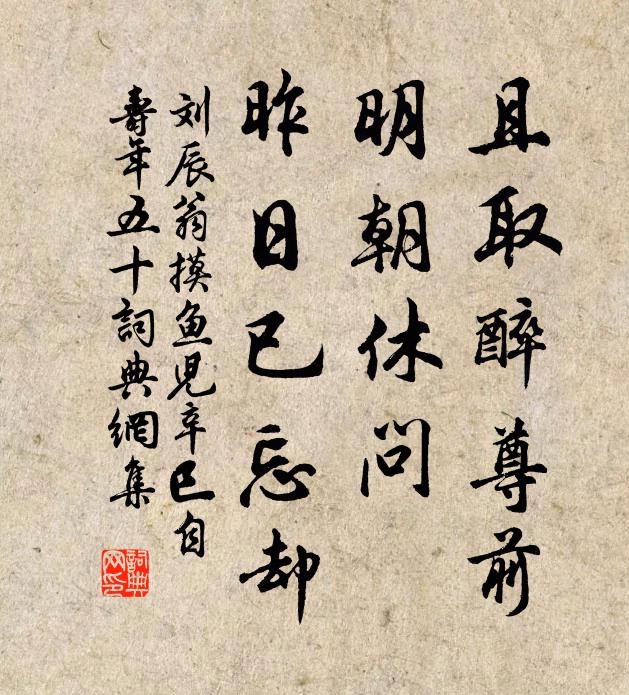 且取醉尊前
明朝休问
昨日已忘却
刘辰翁摸鱼児辛巳自
壽年五十詞典網集
詞典
网印